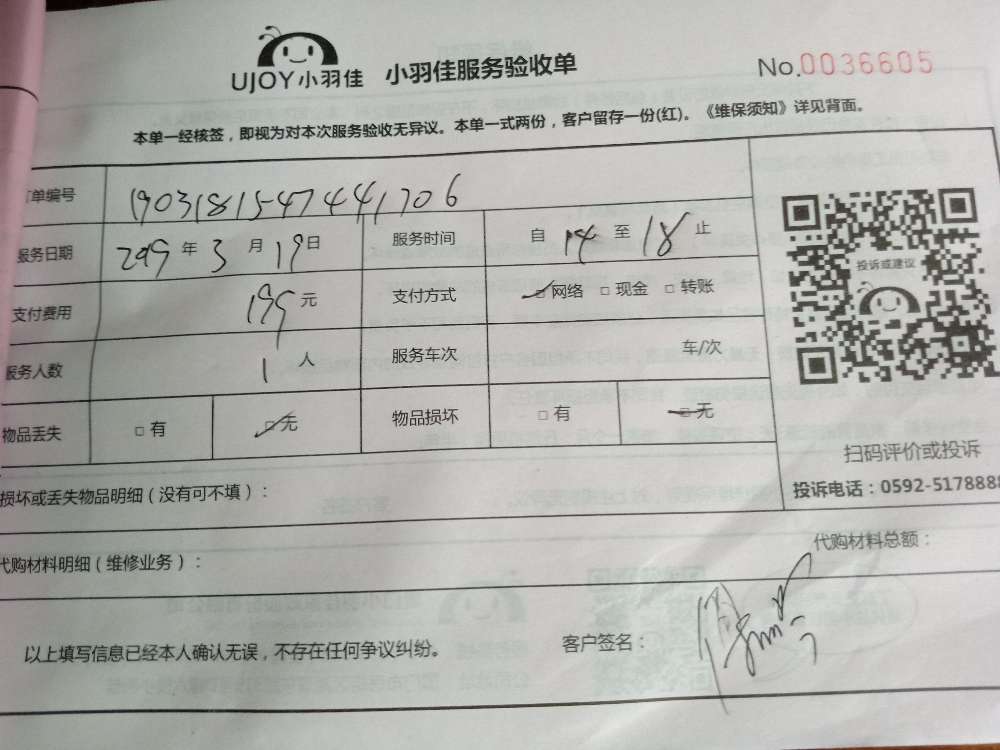 UJOY小羽佳 小羽佳服务验收单 No.0036605
本单一经核签，即视为对本次服务验收无异议。本单一式两份，客户留存一份(红)。《维保须知》详见背面。
订单编号 1903181547441706
服务日期 2019 年 3 月 19 日 服务时间 自 14 至 18 止
支付费用 195 元 支付方式 □网络 □现金 □转账
服务人数 1 人 服务车次 车/次
物品丢失 □有 □无 物品损坏 □有 □无
投诉或建议
扫码评价或投诉
投诉电话：0592-5178888
损坏或丢失物品明细（没有可不填）：
代购材料明细（维修业务）： 代购材料总额：
以上填写信息已经本人确认无误，不存在任何争议纠纷。 客户签名：